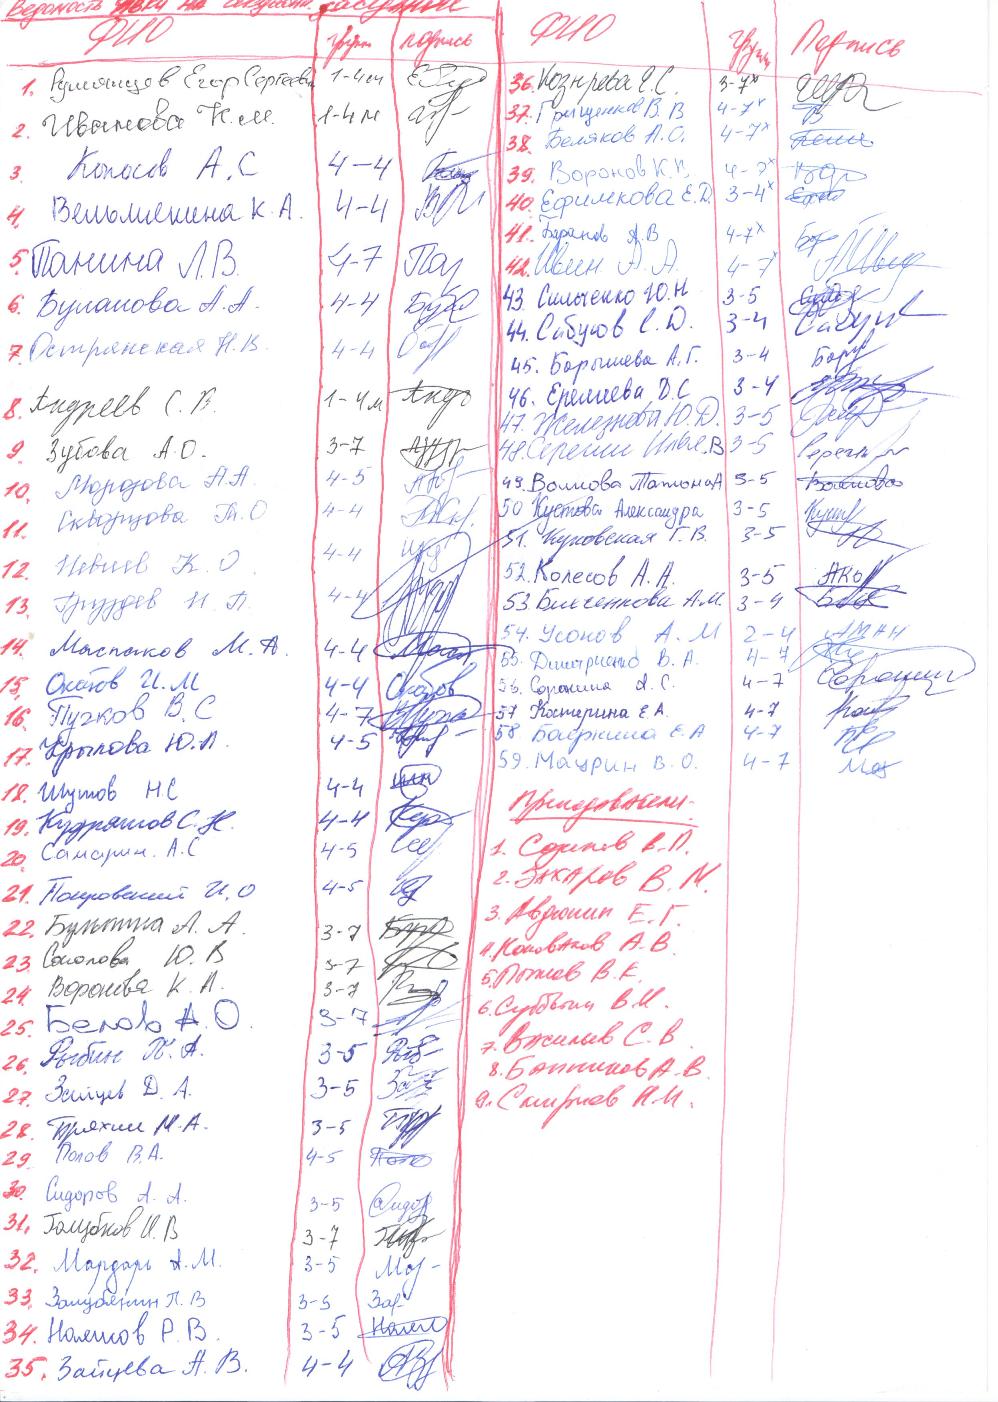 Ведомость явки на секцион. заседание
ФИО групп подпись
1. Румянцев Егор Сергеевич 1-4м
2. Иванова К.М. 1-4м
3. Колосов А.С 4-4
4. Вельмянкина К.А. 4-4
5. Панина Л.В. 4-7 Пан
6. Буланова А.А. 4-4
7. Острянская Н.В. 4-4
8. Андреев С.В. 1-4м Андр
9. Зубова А.О. 3-7
10. Морозова А.А. 4-5
11. Скворцова Т.О 4-4
12. К.О. 4-4
13. Груздев И.А. 4-4
14. Маслаков М.А. 4-4
15. Охотов И.М 4-4
16. Пучков В.С 4-7
17. Крылова Ю.А. 4-5
18. Шутов Н.С 4-4
19. Кудряшов С.Н. 4-4
20. Самарин. А.С 4-5
21. Покровский И.О 4-5
22. Л.А. 3-7
23. Соколова Ю.В 3-7
24. Воронова К.А. 3-7
25. Белов А.О. 3-7
26. Рыбин П.А. 3-5
27. Зайцев Д.А. 3-5
28. Пряхин М.А. 3-5
29. Попов В.А. 4-5
30. Сидоров А.А. 3-5 Сидор
31. Голубков И.В 3-7
32. Мардарь А.М. 3-5
33. П.В 3-5
34. Налетов Р.В. 3-5
35. Зайцева А.В. 4-4
ФИО групп Подпись
36. Козырева Е.С. 3-7х
37. Грищенков В.В 4-7х
38. Беляков А.О. 4-7х
39. Воронов К.В. 4-7х
40. Ефимкова Е.Д. 3-4х
41. Баранов А.В 4-7х
42. Ивин А.А. 4-7х
43. Сильченко Ю.Н 3-5
44. Сабуров С.Д. 3-4
45. Борышева А.Г. 3-4
46. Еремеева Д.С 3-4
47. Железнова Ю.Д. 3-5
48. Серегин Илья.В 3-5
49. Волкова Татьяна А 3-5 Волкова
50 Кустова Александра 3-5
51. Куковская Г.В. 3-5
52. Колесов А.А. 3-5
53. А.М. 3-4
54. Усонов А.М 2-4 АМАН
55. Дмитриенко В.А. 4-7
56. Сорокина А.С. 4-7
57 Катерина Е.А. 4-7
58. Е.А 4-7
59. Мазрин В.О. 4-7
Преподователи.
1. А.П.
2. Захаров В.М.
3. Авдюнин Е.Г.
4. Коновалов А.В.
5. В.Е.
6. Субботин В.И.
7. Васильев С.В
8. Банников А.В.
9. Смирнов Н.И.